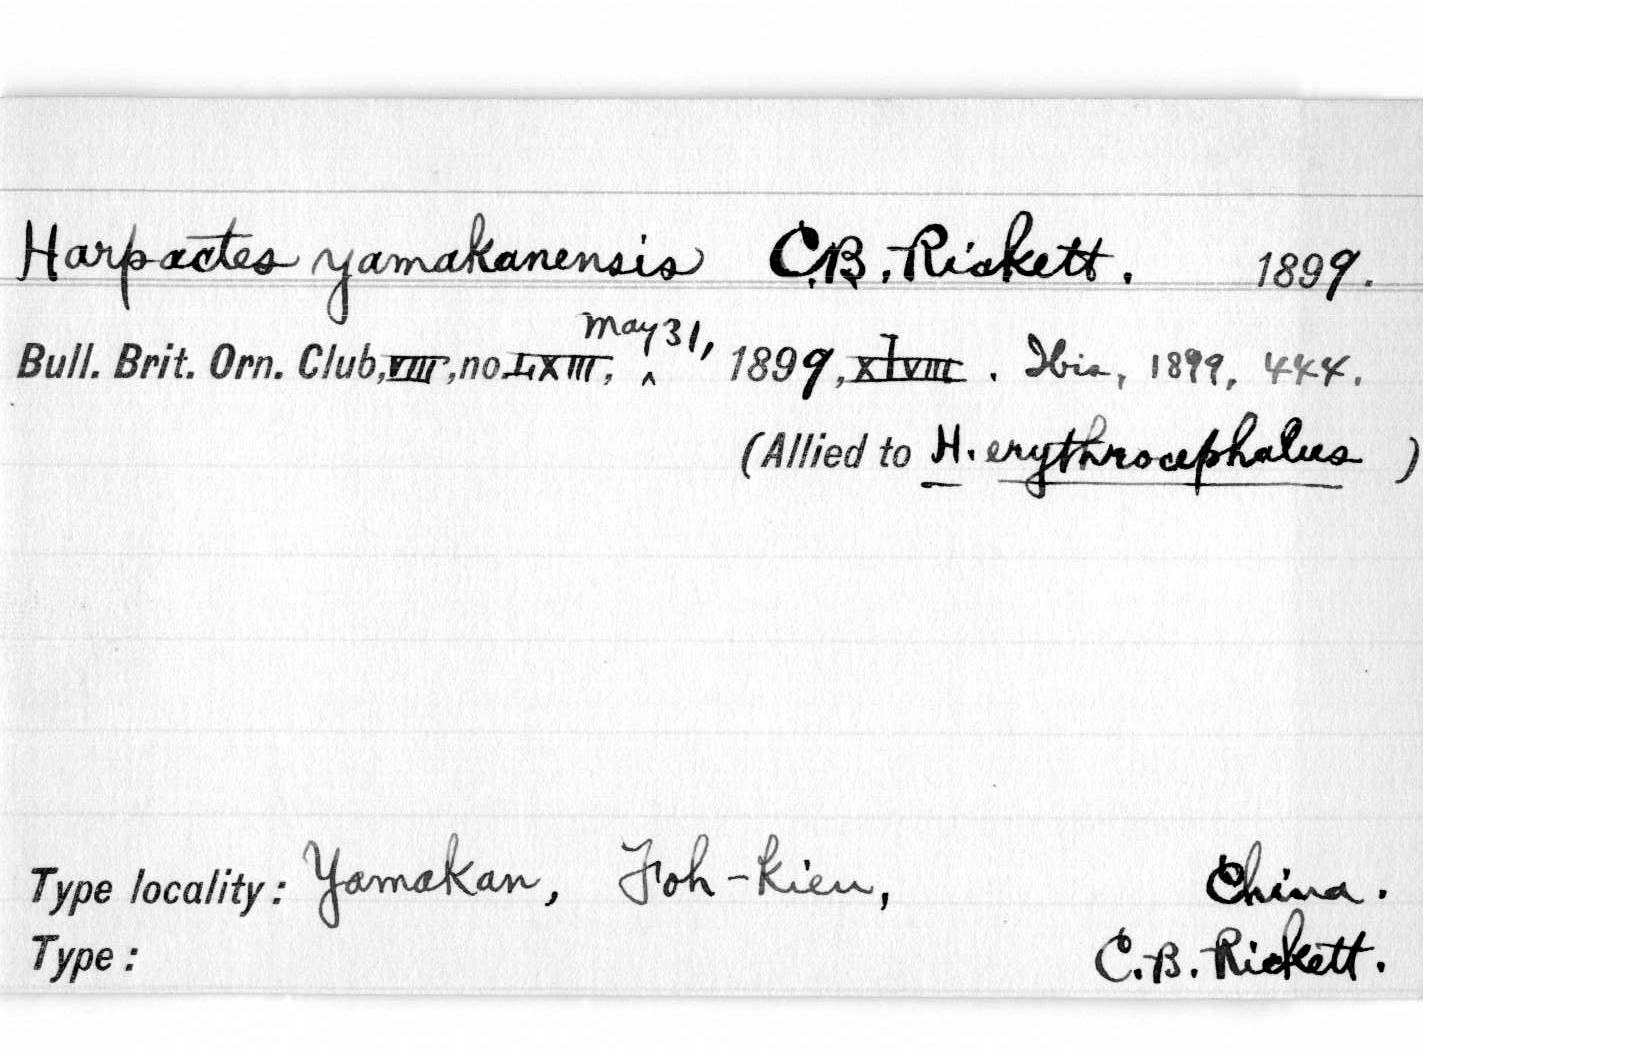 Harpactes yamakanensis C.B. Rickett. 1899.
Bull. Brit. Orn. Club, VIII, no. LXIII, ^ May 31, 1899, xlviii. Ibis, 1899, 444.
(Allied to H. erythrocephalus )
Type locality: Yamakan, Foh-kien, China.
Type: C.B. Rickett.